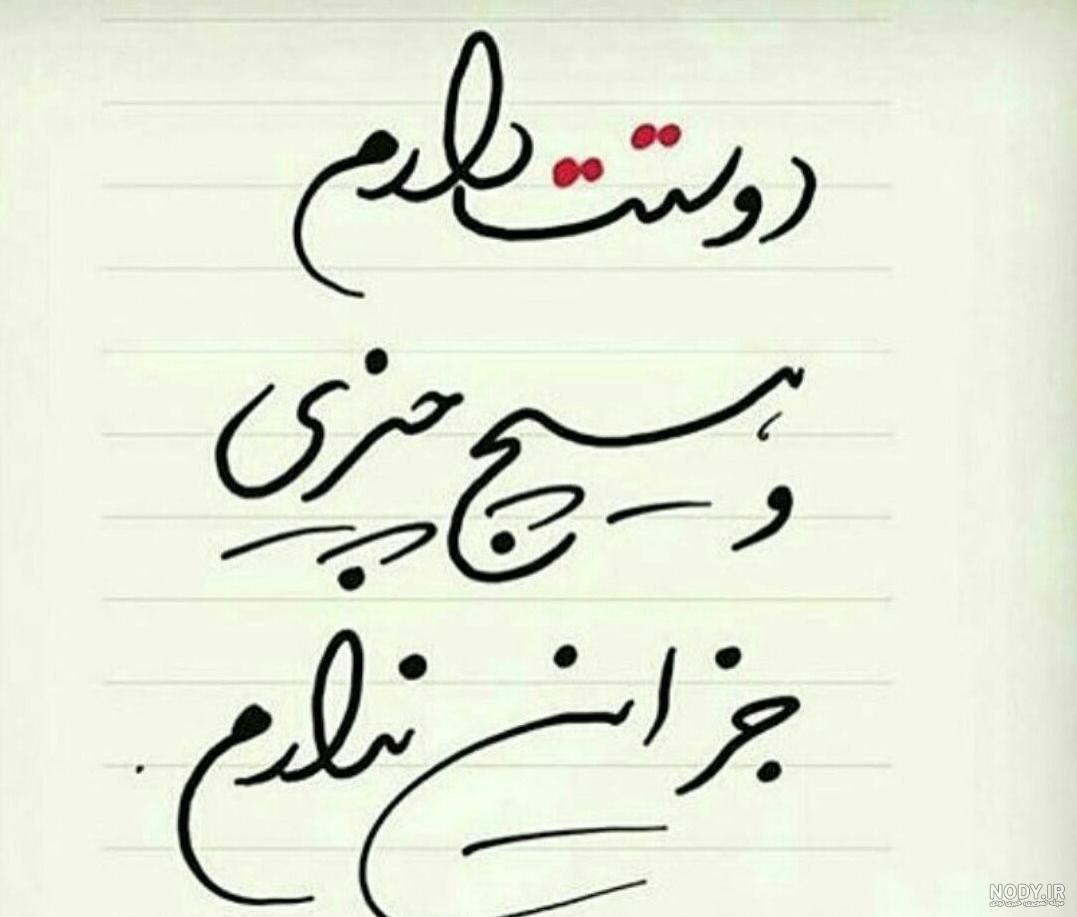 دوستت دارم
و هیچ چیزی
جز این ندارم.
NODY.IR